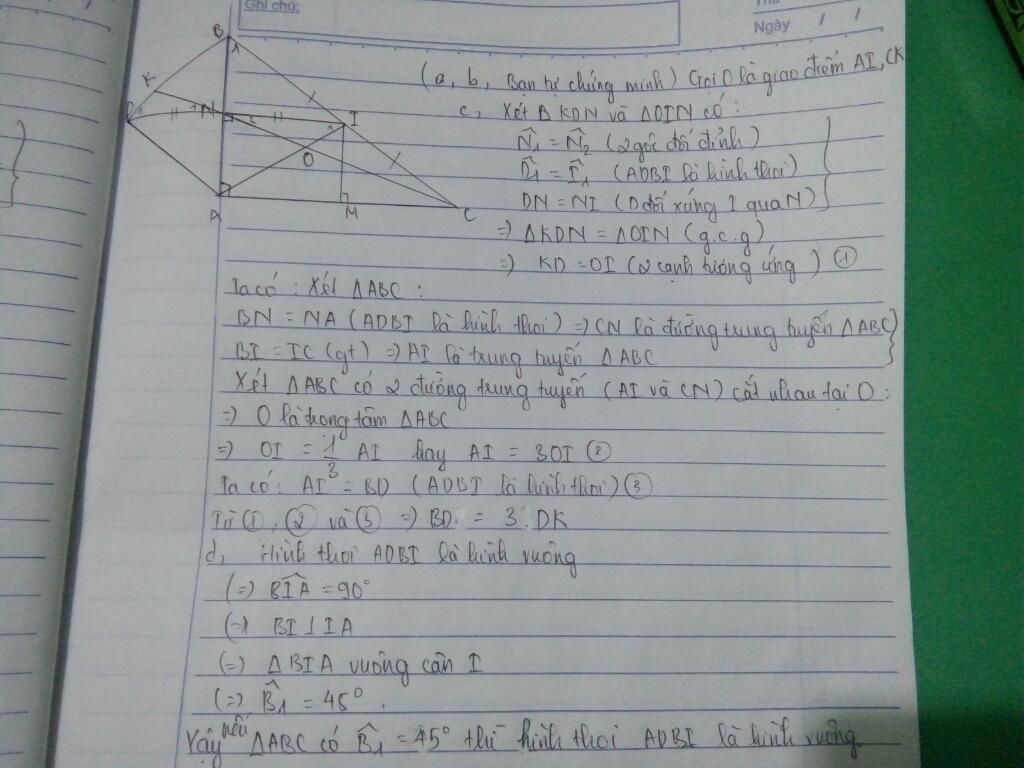 Ghi chú:
Ngày / /
B
1
K
D
1
N
1
2
I
1
O
A
M
C
(a, b, Bạn tự chứng minh) Gọi O là giao điểm AI, CK
c, Xét Δ KDN và ΔOIN có:
N̂1 = N̂2 (2 góc đối đỉnh)
D̂1 = Î1 (ADBI là hình thoi)
DN = NI (D đối xứng I qua N)
=> ΔKDN = ΔOIN (g.c.g)
=> KD = OI (2 cạnh tương ứng) ①
Ta có: Xét ΔABC:
BN = NA (ADBI là hình thoi) => CN là đường trung tuyến ΔABC
BI = IC (gt) => AI là trung tuyến ΔABC
Xét ΔABC có 2 đường trung tuyến (AI và CN) cắt nhau tại O:
=> O là trọng tâm ΔABC
=> OI = 1/3 AI hay AI = 3OI ②
Ta có: AI = BD (ADBI là hình thoi) ③
Từ ①, ② và ③ => BD = 3.DK
d, Hình thoi ADBI là hình vuông
(=) BÎA = 90°
(=) BI ⊥ IA
(=) Δ BIA vuông cân I
(=) B̂1 = 45°.
Vậy nếu ΔABC có B̂1 = 45° thì hình thoi ADBI là hình vuông